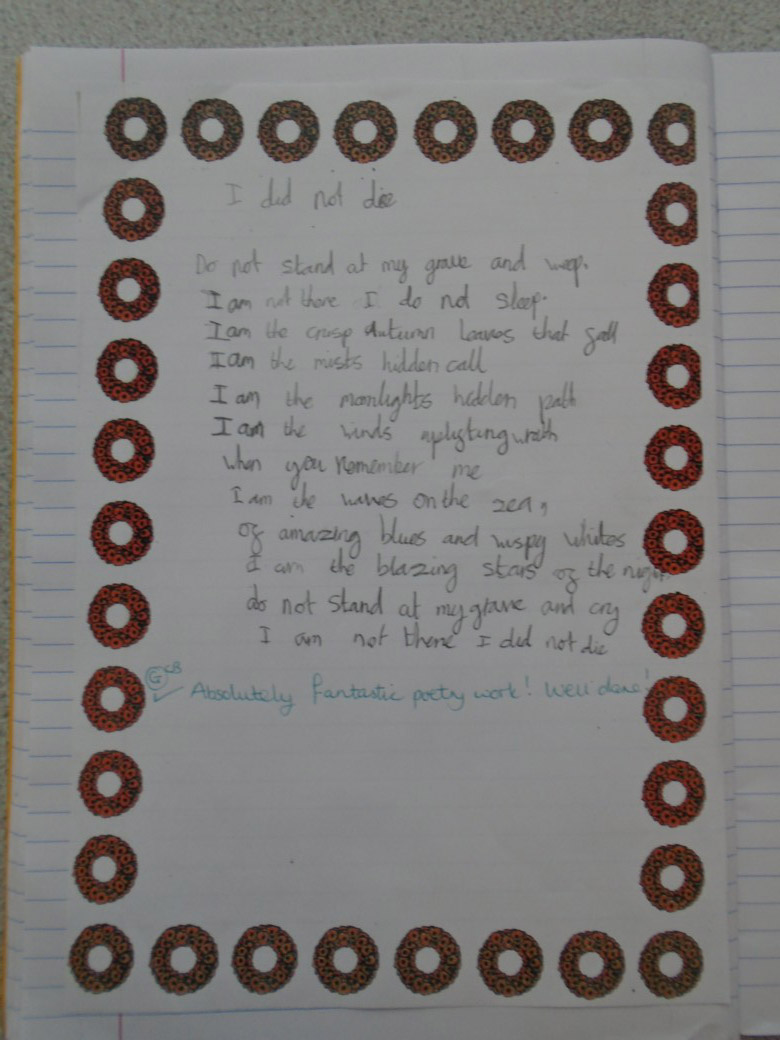 I did not die
Do not stand at my grave and weep.
I am not there I do not sleep.
I am the crisp Autumn leaves that fall
I am the mists hidden call
I am the moonlights hidden path
I am the winds wrath
when you remember me
I am the waves on the zea,
of amazing blues and wispy whites
I am the blazing stars of the night
do not stand at my grave and cry
I am not there I did not die
G CB
Absolutely fantastic poetry work! Well done!